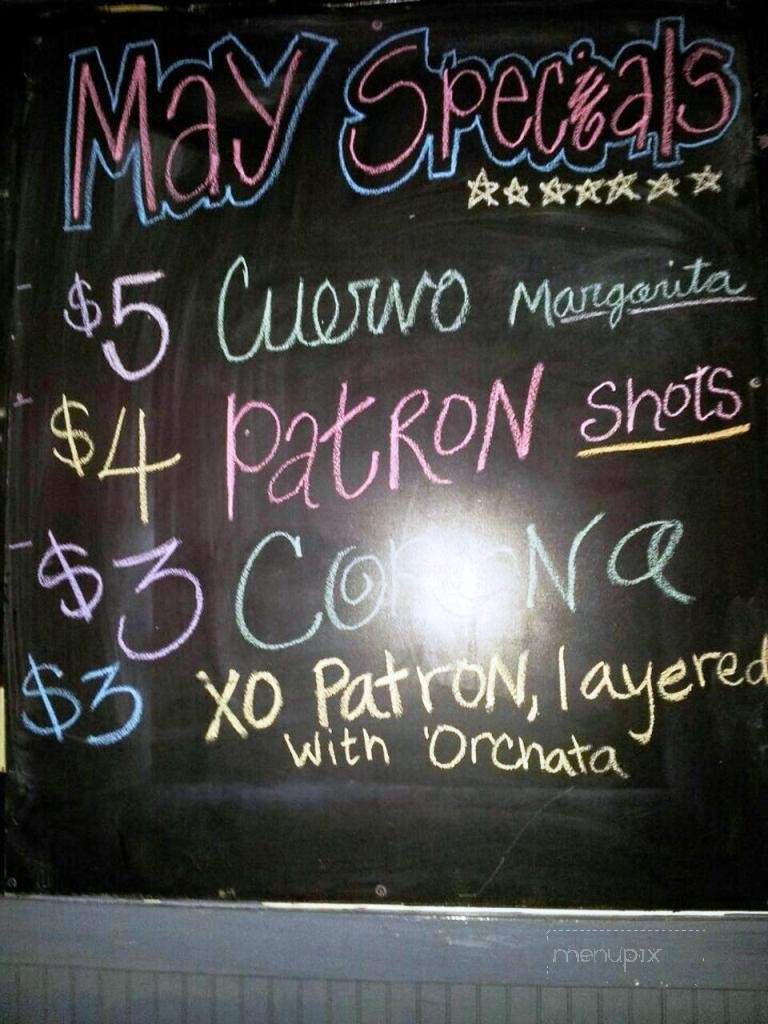 May Specials
$5 Cuervo Margarita
$4 Patron Shots
$3 Corona
$3 XO Patron, layered
with 'Orchata
menupix